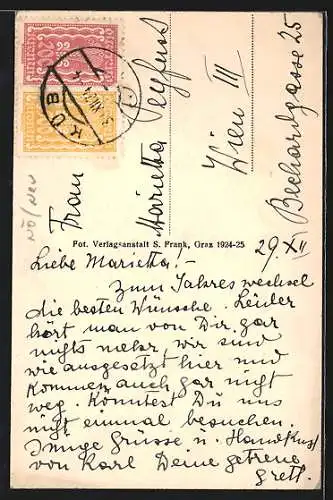 Frau
Marietta
Wien III
Bechardgasse 25
KÜB
NÖ/Neu
Fot. Verlagsanstalt S. Frank, Graz 1924-25
29. XII
Liebe Marietta! –
Zum Jahreswechsel
die besten Wünsche. Leider
hört man von Dir gar
nichts mehr, wir sind
wie ausgesetzt hier und
kommen auch gar nicht
weg. Könntest Du uns
nicht einmal besuchen.
Innige Grüsse u. Handkuss
von Karl Deine getreue
Gretl.